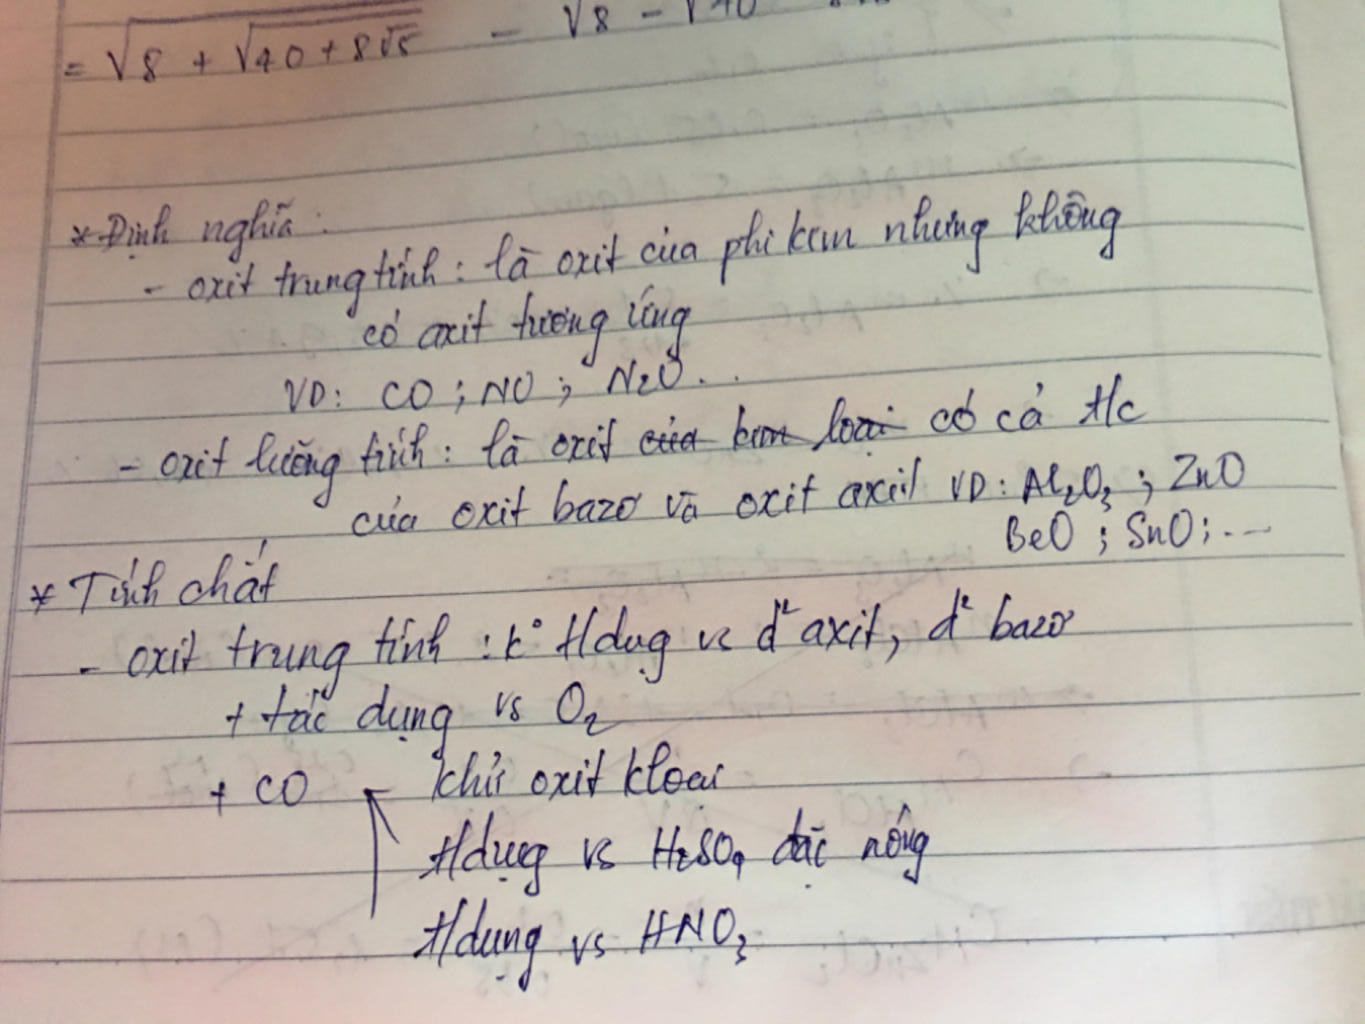 = √8 + √40 + 8√5 − √8 − √40
* Định nghĩa :
- oxit trung tính : là oxit của phi kim nhưng không
có axit tương ứng
VD: CO ; NO ; N2O...
- oxit lưỡng tính : là oxit của kim loại có cả t/c
của oxit bazơ và oxit axit VD: Al2O3 ; ZnO
BeO ; SnO ; ...
* Tính chất
- oxit trung tính : k° t/dụg vs d² axit, d² bazơ
+ tác dụng vs O2
+ CO - khử oxit kloại
t/dụng vs H2SO4 đặc nóng
t/dụng vs HNO3